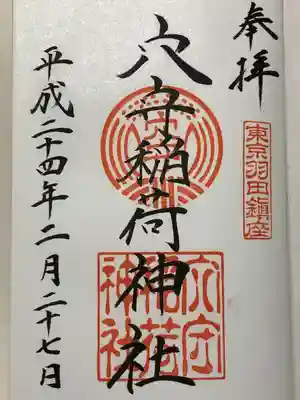 奉拝
東京羽田鎮座
穴守稲荷神社
穴守稲荷神社
平成二十四年二月二十七日